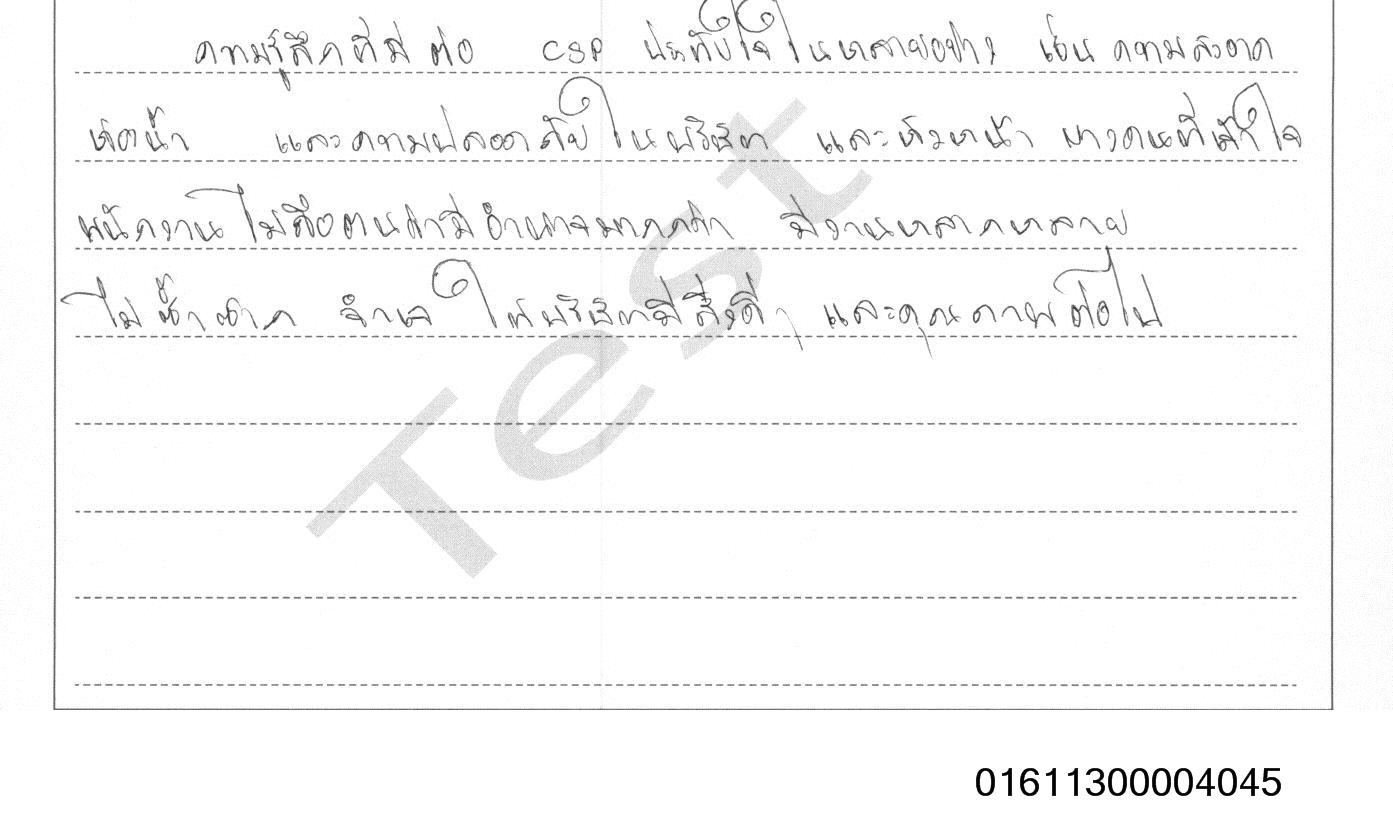 ความรู้สึกที่มีต่อ CSP ประทับใจในหลายอย่าง เช่น ความสะอาด
ห้องน้ำ และความปลอดภัยในบริษัท และหัวหน้า บางคนที่เข้าใจ
พนักงาน ไม่ถือตนว่ามีอำนาจมากกว่า มีงานหลากหลาย
ไม่ซ้ำซาก ให้บริษัทมีสิ่งดีๆ และคุณภาพต่อไป
Test
01611300004045